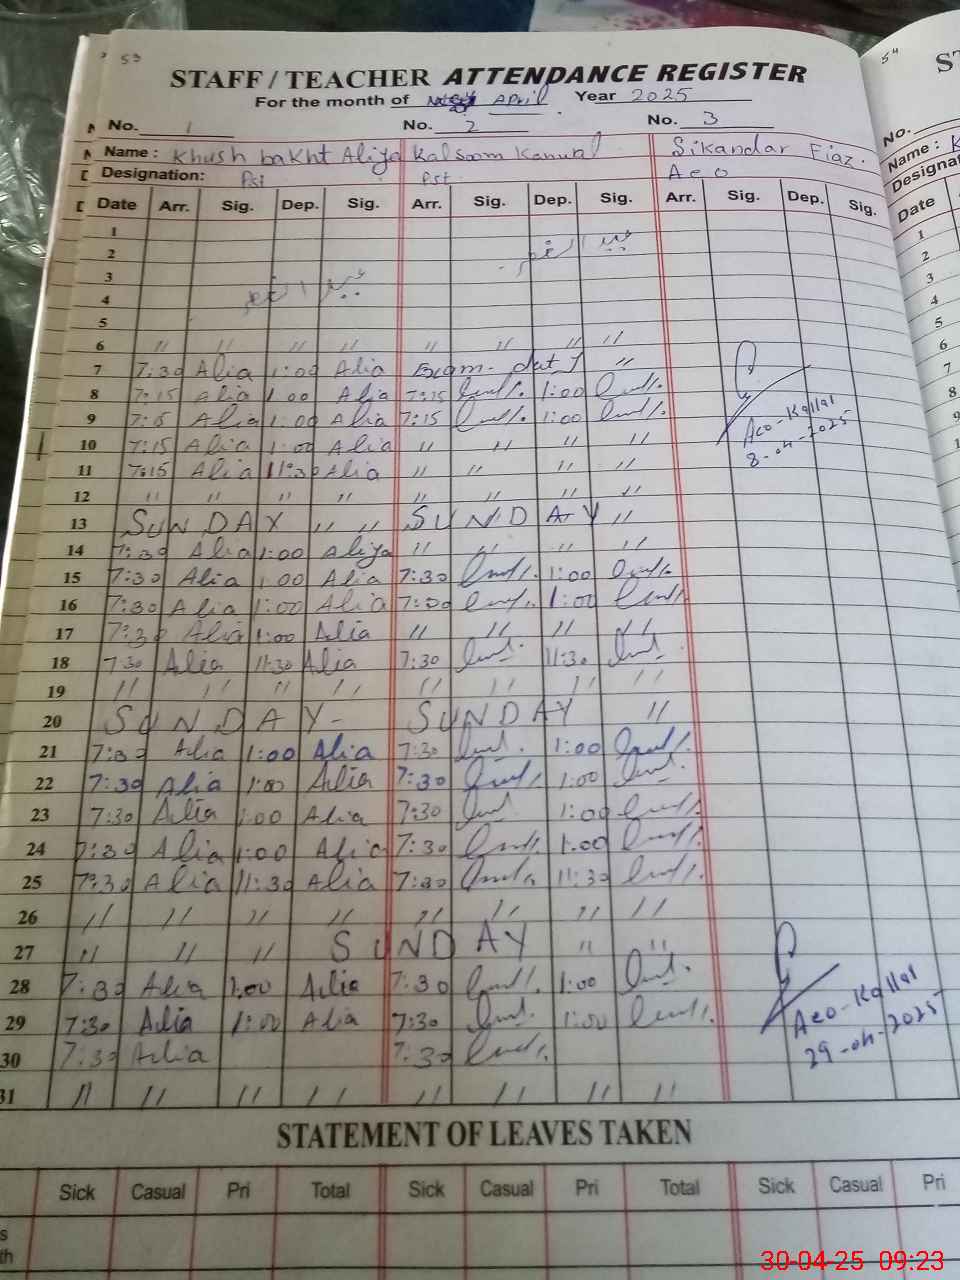 53
STAFF / TEACHER ATTENDANCE REGISTER
For the month of April Year 2025
No. 1 No. 2 No. 3
Name : Khush bakht Aliya Kalsoom Kanwal Sikandar Fiaz.
Designation: Pst Pst Aeo
Date Arr. Sig. Dep. Sig. Arr. Sig. Dep. Sig. Arr. Sig. Dep. Sig.
1
2
3
4
5
6 " " " " " " " "
7 7:30 Alia 1:00 Alia "
8 7:15 Alia 1:00 Alia 7:15 1:00
9 7:15 Alia 1:00 Alia 7:15 1:00
Aeo-Kallal
10 7:15 Alia 1:00 Alia " " " "
8-04-2025
11 7:15 Alia 11:30 Alia " " " "
12 " " " " " " " "
13 SUNDAY " " SUNDAY "
14 7:30 Alia 1:00 Aliya " " " "
15 7:30 Alia 1:00 Alia 7:30 1:00
16 7:30 Alia 1:00 Alia 7:00 1:00
17 7:30 Alia 1:00 Alia " " " "
18 7:30 Alia 11:30 Alia 7:30 11:30
19 " " " " " " " "
20 SUNDAY - SUNDAY "
21 7:30 Alia 1:00 Alia 7:30 1:00
22 7:30 Alia 1:00 Alia 7:30 1:00
23 7:30 Alia 1:00 Alia 7:30 1:00
24 7:30 Alia 1:00 Alia 7:30 1:00
25 7:30 Alia 11:30 Alia 7:30 11:30
26 " " " " " " " "
27 " " " SUNDAY " "
28 7:30 Alia 1:00 Alia 7:30 1:00
29 7:30 Alia 1:00 Alia 7:30 1:00
Aeo-Kallal
29-04-2025
30 7:30 Alia 7:30
31 " " " " " " " "
STATEMENT OF LEAVES TAKEN
Sick Casual Pri Total Sick Casual Pri Total Sick Casual Pri
54
No.
Name : K
Date
1
2
3
4
5
6
7
8
9
30-04-25 09:23